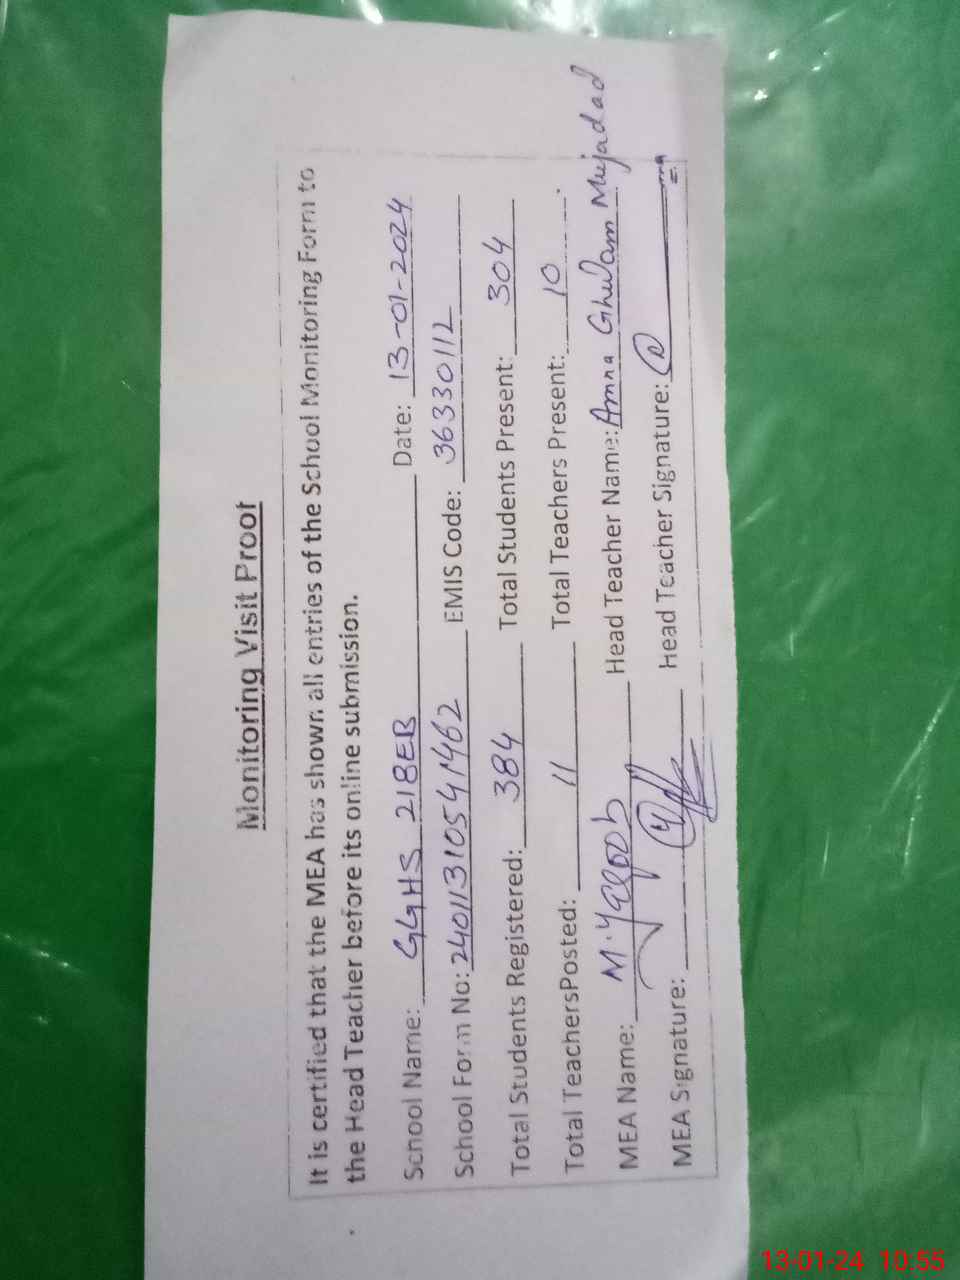 Monitoring Visit Proof
It is certified that the MEA has shown all entries of the School Monitoring Form to
the Head Teacher before its online submission.
School Name: GGHS 218EB Date: 13-01-2024
School Form No: 24011310541462 EMIS Code: 36330112
Total Students Registered: 384 Total Students Present: 304
Total TeachersPosted: 11 Total Teachers Present: 10
MEA Name: M.Yaqoob Head Teacher Name: Amna Ghulam Mujadad
MEA Signature: Head Teacher Signature:
13-01-24 10:55